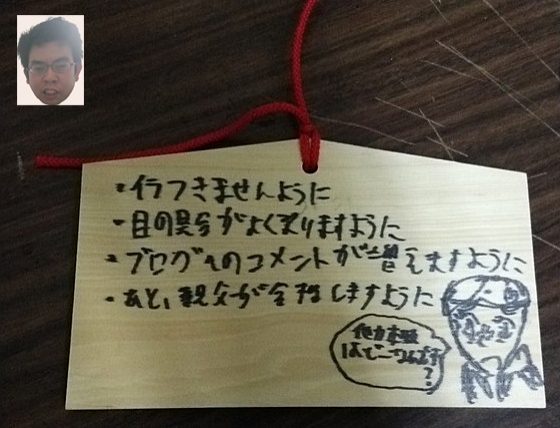 ・イラつきませんように
・目の具合がよくなりますように
・ブログへのコメントが増えますように
・あと、親父が全快しますように
他力本願
はどーなんです
?